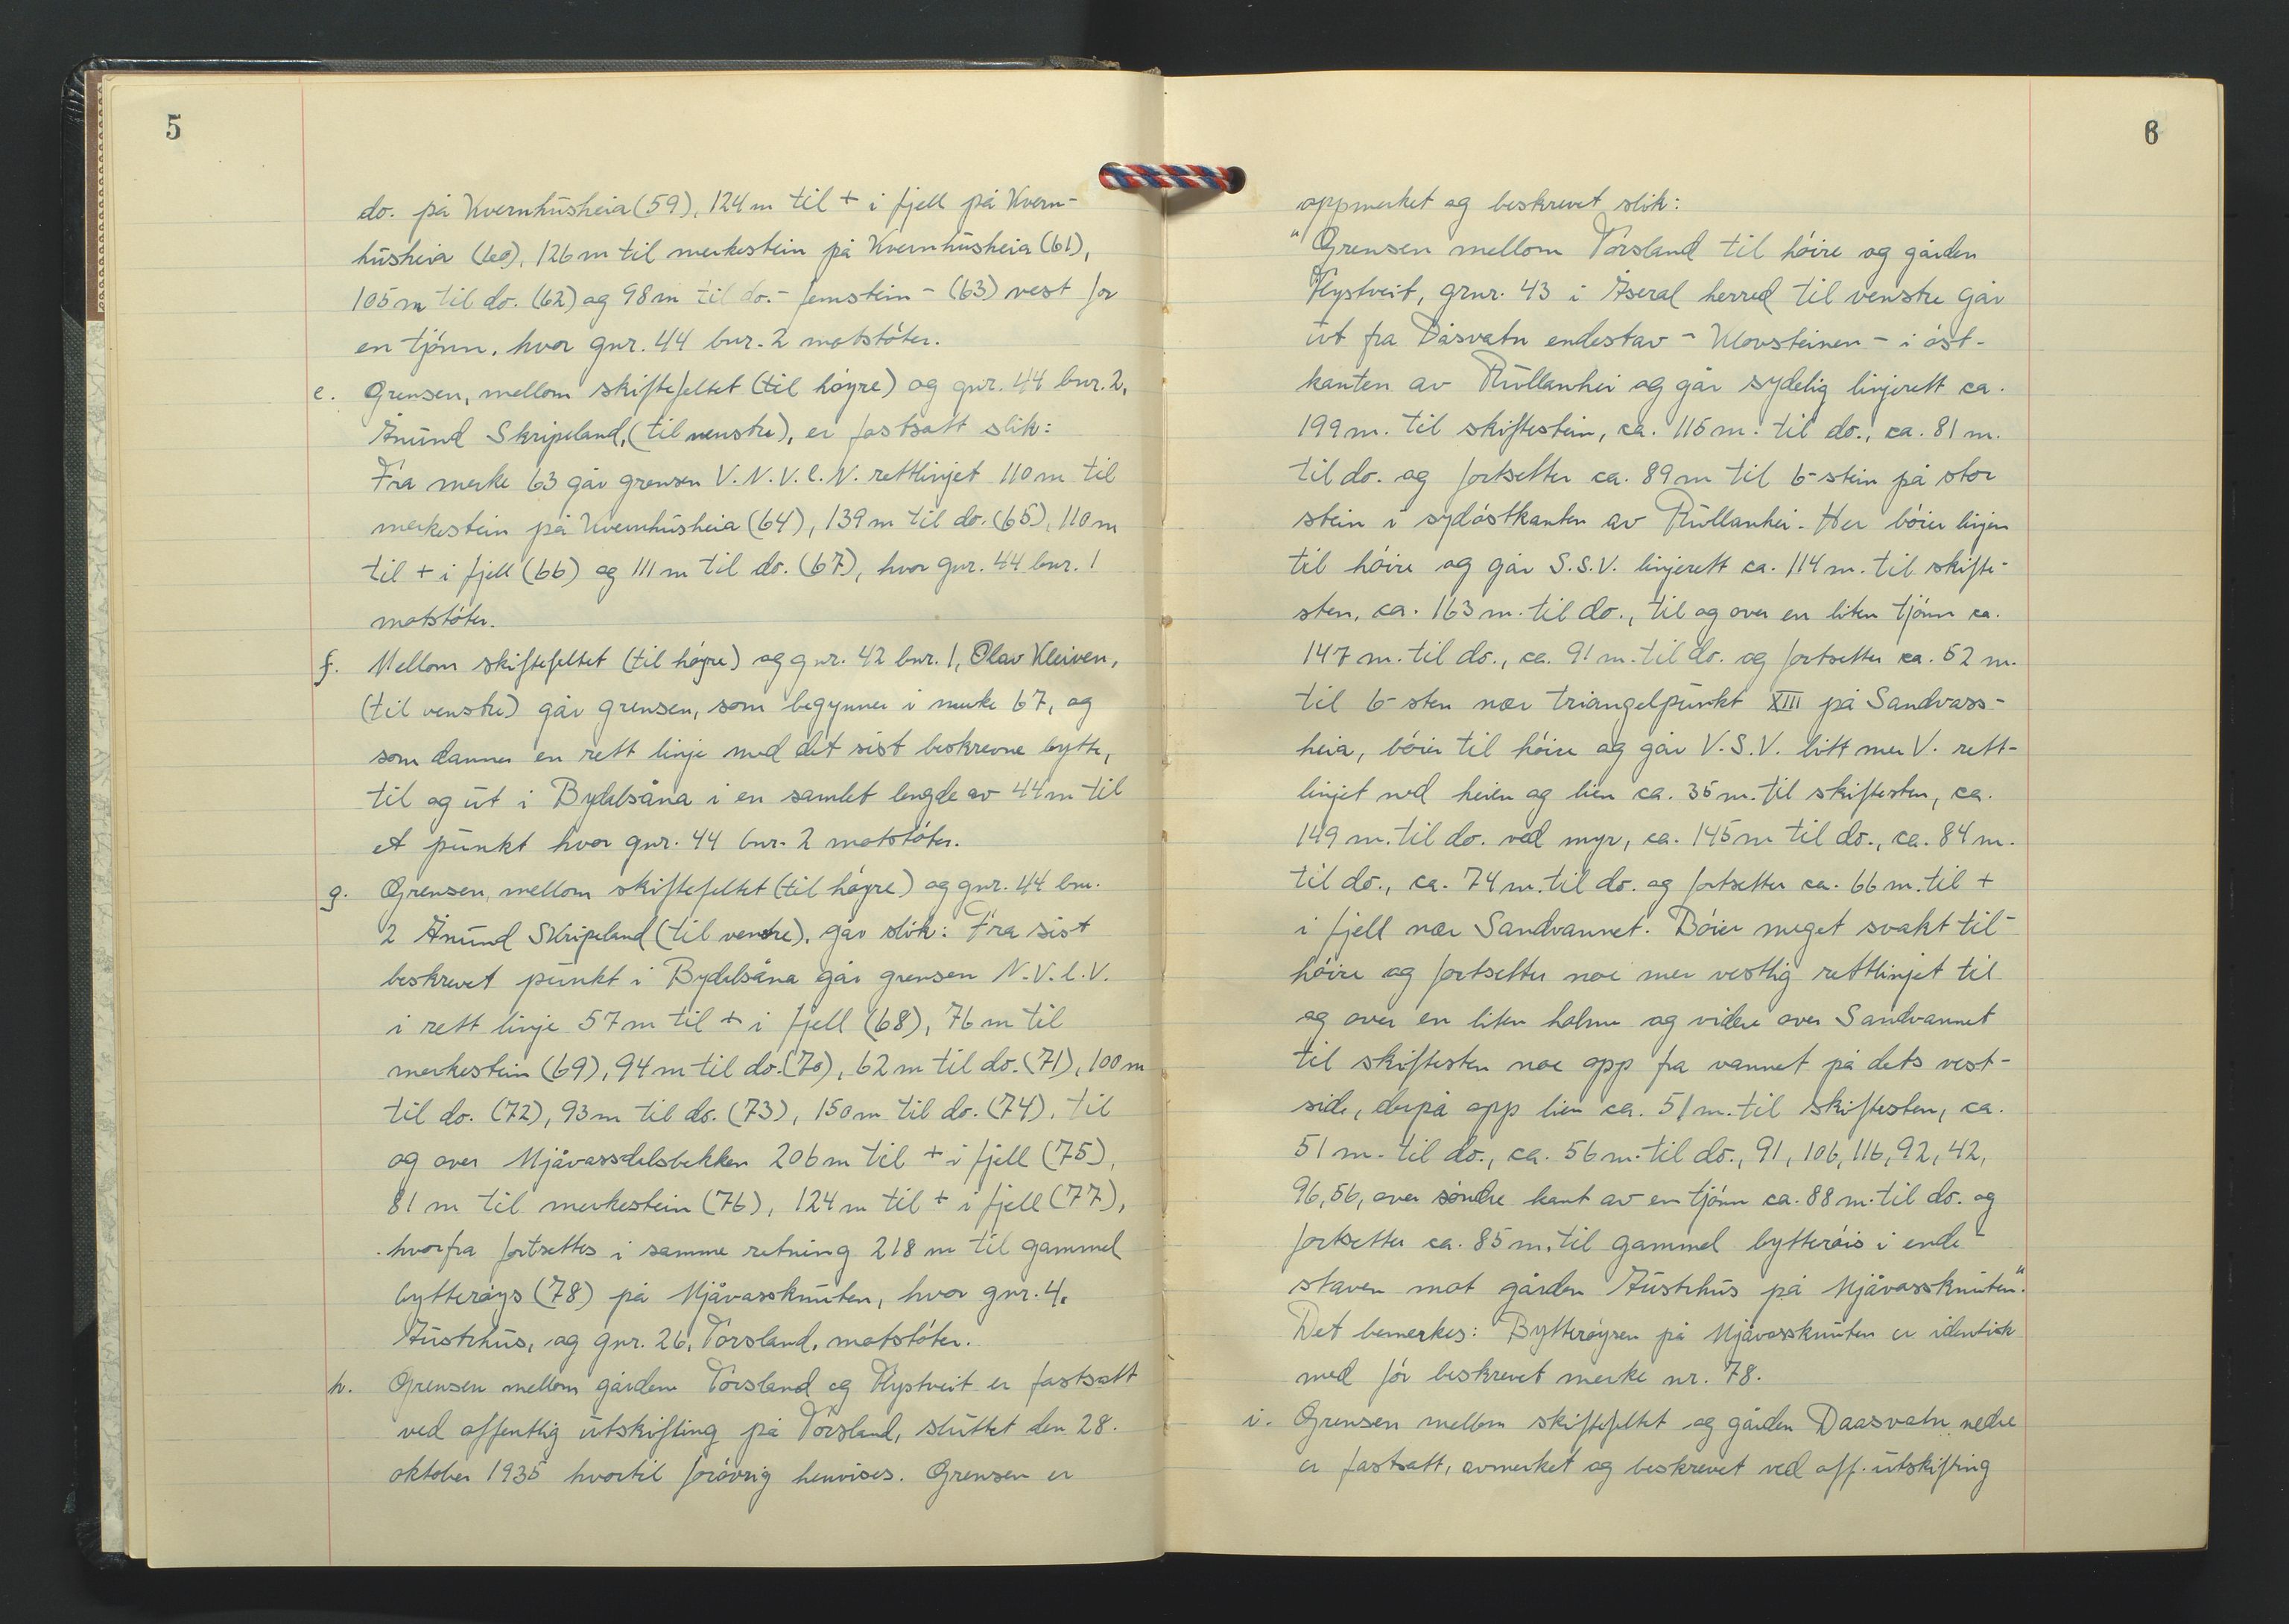 5
do. på Kvernhusheia (59), 124 m til + i fjell på Kvern-
husheia (60), 126 m til merkestein på Kvernhusheia (61),
105 m til do. (62) og 98 m til do. - femstein - (63) vest for
en tjönn, hvor gnr. 44 bnr. 2 motstöter.
e. Grensen, mellom skiftefeltet (til höyre) og gnr. 44 bnr. 2,
Ånund Skripeland, (til venstre), er fastsatt slik:
Fra merke 63 går grensen V.N.V.l.N. rettlinjet 110 m til
merkestein på Kvernhusheia (64), 139 m til do. (65), 110 m
til + i fjell (66) og 111 m til do. (67), hvor gnr. 44 bnr. 1
motstöter.
f. Mellom skiftefeltet (til höyre) og gnr. 42 bnr. 1, Olav Kleiven,
(til venstre) går grensen, som begynner i merke 67, og
som danner en rett linje med det sist beskrevne bytte,
til og ut i Bydelsåna i en samlet lengde av 44 m til
et punkt hvor gnr. 44 bnr. 2 motstöter.
g. Grensen, mellom skiftefeltet (til höyre) og gnr. 44 bnr.
2 Ånund Skripeland (til venstre), går slik: Fra sist
beskrevet punkt i Bydelsåna går grensen N.V.l.V.
i rett linje 57 m til + i fjell (68), 76 m til
merkestein (69), 94 m til do. (70), 62 m til do. (71), 100 m
til do. (72), 93 m til do. (73), 150 m til do. (74), til
og over Mjåvassdelsbekken 206 m til + i fjell (75),
81 m til merkestein (76), 124 m til + i fjell (77),
hvorfra fortsettes i samme retning 218 m til gammel
bytteröys (78) på Mjåvassknuten, hvor gnr. 4,
Austrhus, og gnr. 26, Torsland, motstöter.
h. Grensen mellom gårdene Torsland og Hystveit er fastsatt
ved offentlig utskifting på Torsland, sluttet den 28.
oktober 1935 hvortil forövrig henvises. Grensen er
6
oppmerket og beskrevet slik:
"Grensen mellom Torsland til höire og gården
Hystveit, grnr. 43 i Åseral herred til venstre går
ut fra Dåsvatn endestav - Klovsteinen - i öst-
kanten av Rullanhei og går sydelig linjerett ca.
199 m. til skiftestein, ca. 115 m. til do., ca. 81 m.
til do. og fortsetter ca. 89 m til 5-stein på stor
stein i sydöstkanten av Rullanhei. Her böier linjen
til höire og går S.S.V. linjerett ca. 114 m. til skifte-
sten, ca. 163 m. til do., til og over en liten tjönn ca.
147 m. til do., ca. 91 m. til do. og fortsetter ca. 52 m.
til 5-sten nær triangelpunkt XIII på Sandvass-
heia, böier til höire og går V.S.V. litt mer V. rett-
linjet ned heien og lien ca. 35 m. til skiftesten, ca.
149 m. til do. ved myr, ca. 145 m til do., ca. 84 m.
til do., ca. 74 m. til do. og fortsetter ca. 66 m. til +
i fjell nær Sandvannet. Böier meget svakt til
höire og fortsetter noe mer vestlig rettlinjet til
og over en liten holme og videre over Sandvannet
til skiftesten noe opp fra vannet på dets vest-
side, derpå opp lien ca. 51 m. til skiftesten, ca.
51 m. til do., ca. 56 m. til do., 91, 106, 116, 92, 42,
96, 56, over söndre kant av en tjönn ca. 88 m. til do. og
fortsetter ca. 85 m. til gammel bytteröis i ende-
staven mot gården Austrhus på Mjåvassknuten."
Det bemerkes: Bytteröysen på Mjåvassknuten er identisk
med för beskrevet merke nr. 78.
i. Grensen mellom skiftefeltet og gården Daasvatn nedre
er fastsatt, avmerket og beskrevet ved off. utskifting